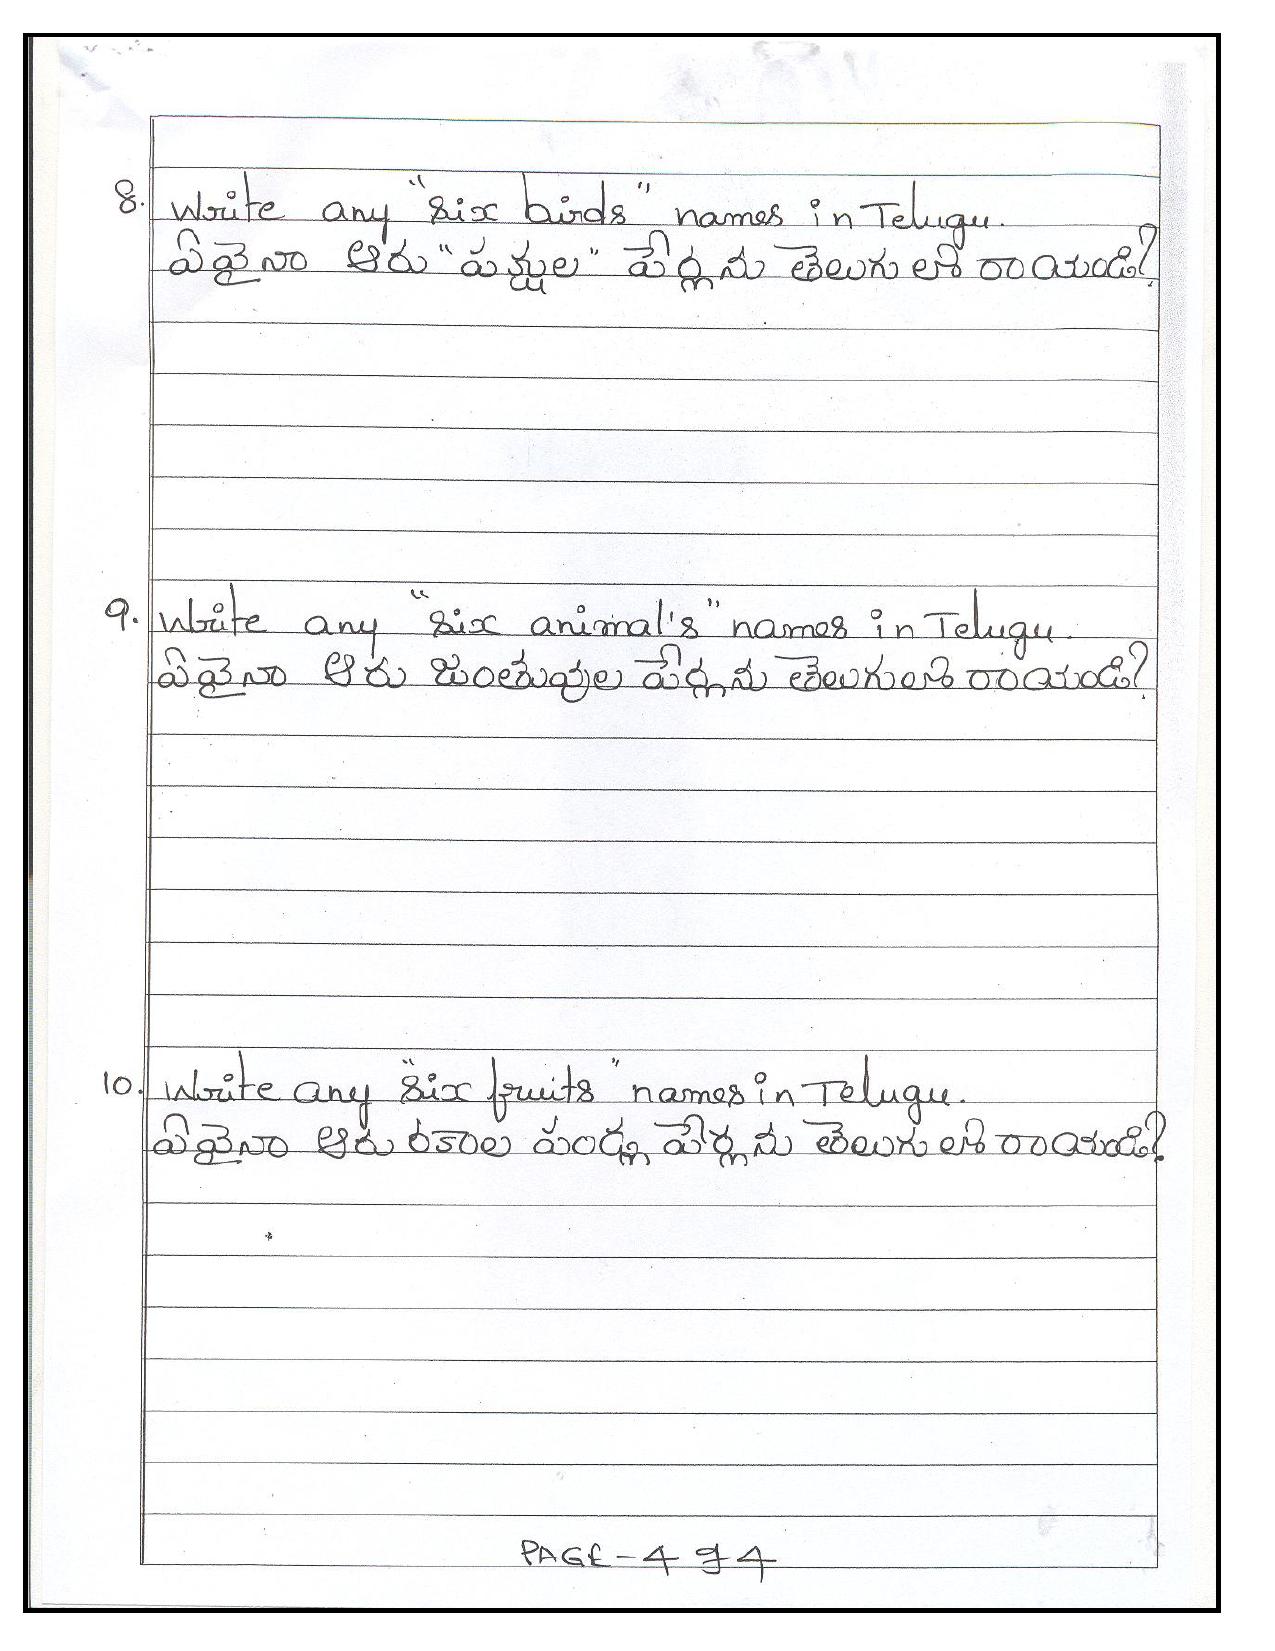 8. Write any "six birds" names in Telugu.
ఏవైనా ఆరు "పక్షుల" పేర్లను తెలుగులో రాయండి?
9. Write any "six animal's" names in Telugu.
ఏవైనా ఆరు జంతువుల పేర్లను తెలుగులో రాయండి?
10. Write any "six fruits" names in Telugu.
ఏవైనా ఆరు రకాల పండ్ల పేర్లను తెలుగులో రాయండి?
PAGE-4